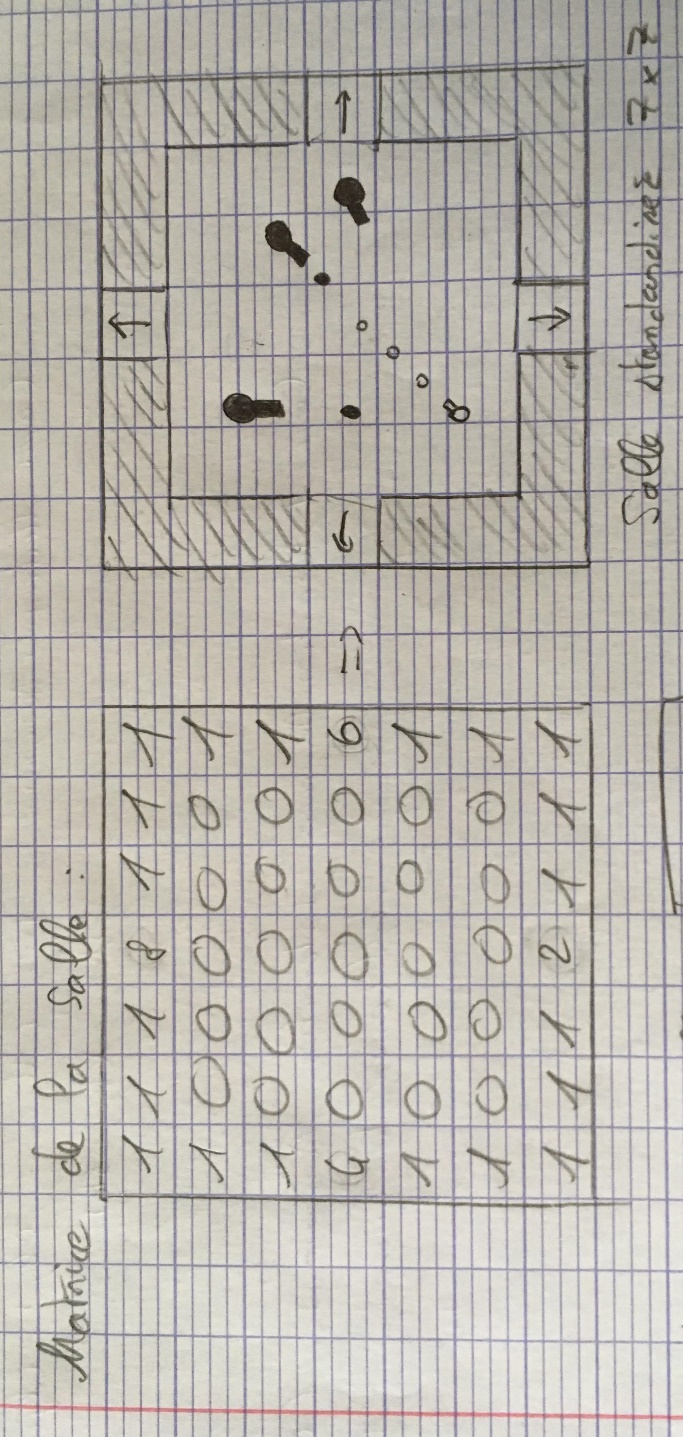 Matrice de la Salle :
1 1 1 8 1 1 1
1 0 0 0 0 0 1
1 0 0 0 0 0 1
4 0 0 0 0 0 6 =>
1 0 0 0 0 0 1
1 0 0 0 0 0 1
1 1 1 2 1 1 1
↑
← →
↓
Salle standardisée 7x7